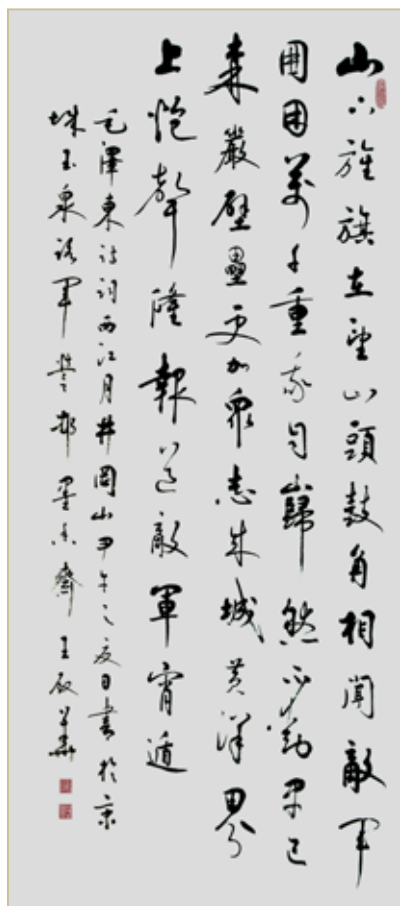 山下旌旗在望山頭鼓角相聞敵軍
圍困萬千重我自巋然不動早已
森嚴壁壘更加衆志成城黄洋界
上炮聲隆報道敵軍宵遁
毛澤東詩詞西江月井岡山甲午之夏日書於京
城玉泉路軍邨墨香齋王